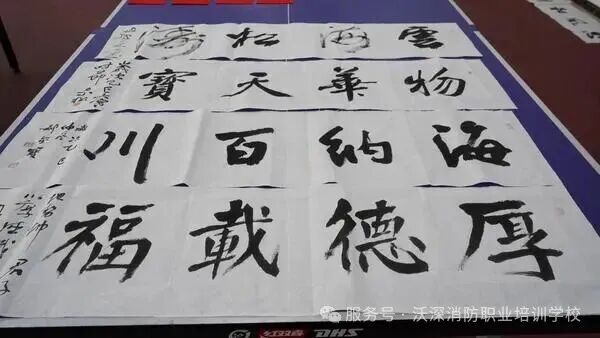 雲海松濤
物華天寶
海納百川
厚德載福
红双喜 DHS
服务号 · 沃深消防职业培训学校